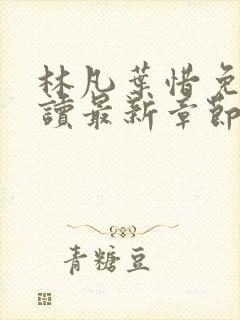 林凡葉惜免
讀最新章節
青糖豆